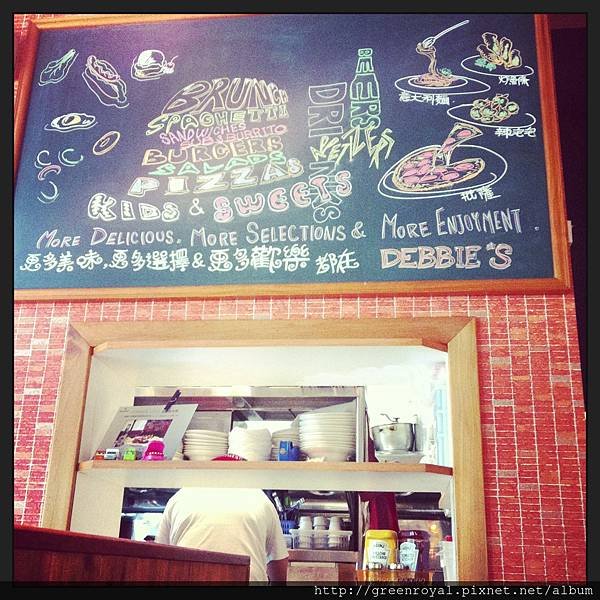 BRUNCH
SPAGHETTI
SANDWICHES
SUB & BURRITO
BURGERS
SALADS
PIZZAS
KIDS & SWEETS
BEERS
DRINKS
意大利麵
披薩
MORE DELICIOUS. MORE SELECTIONS & MORE ENJOYMENT.
更多美味.更多選擇&更多歡樂 都在 DEBBIE'S
http://greenroyal.pixnet.net/album